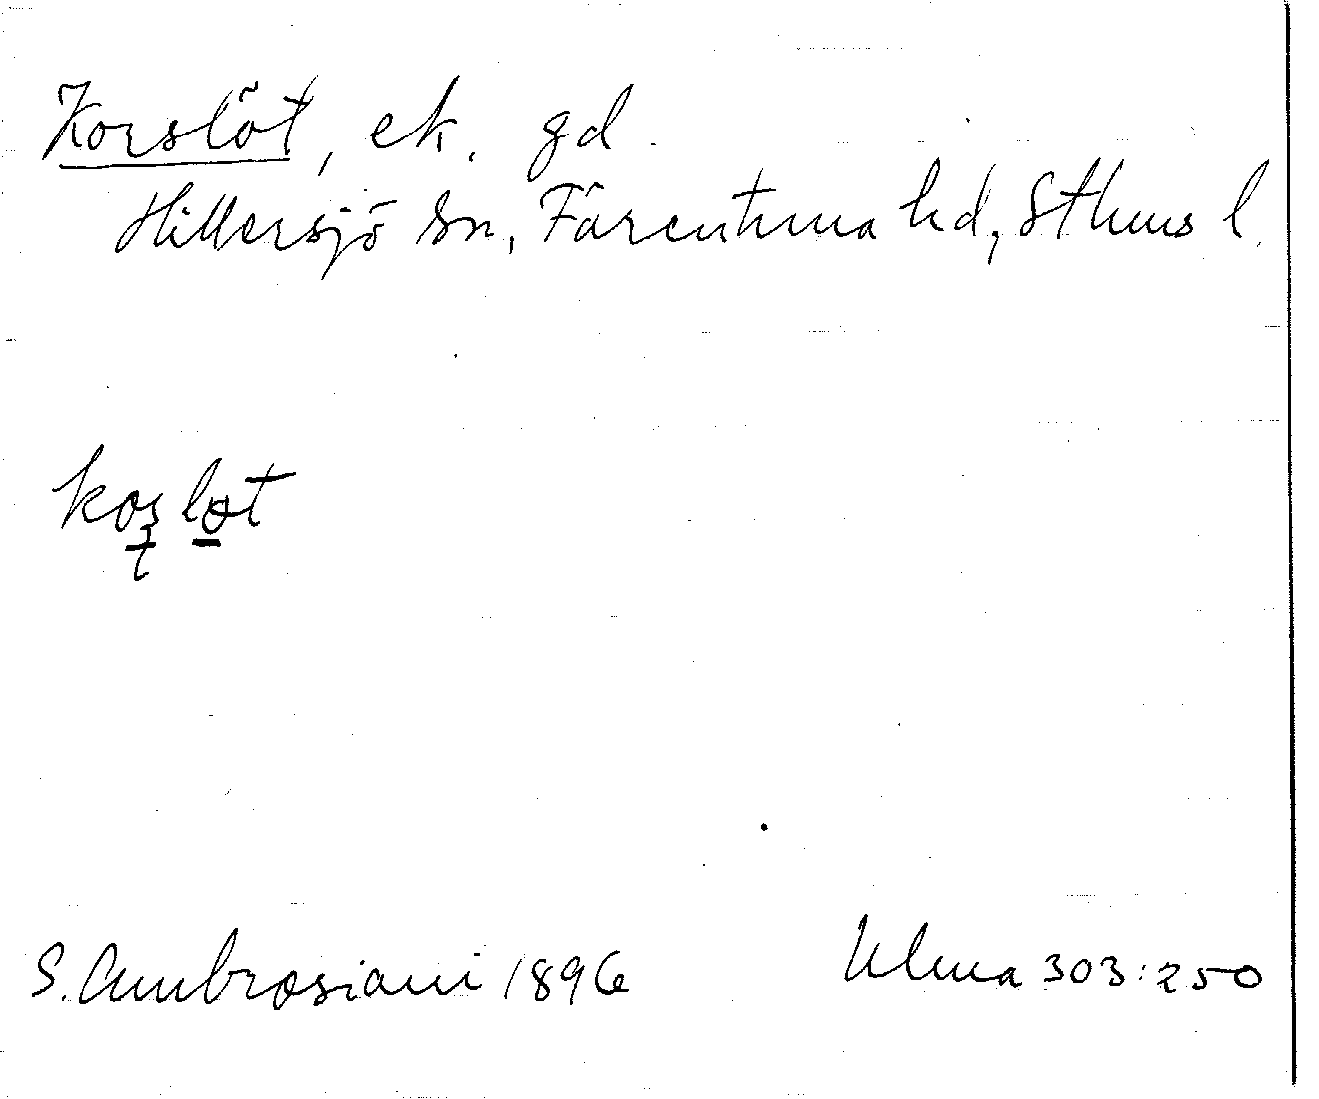 Korslöt, ek. gd.
Hillersjö sn, Färentuna hd, Sthms l.
Ulma 303:250
S. Ambrosiani 1896